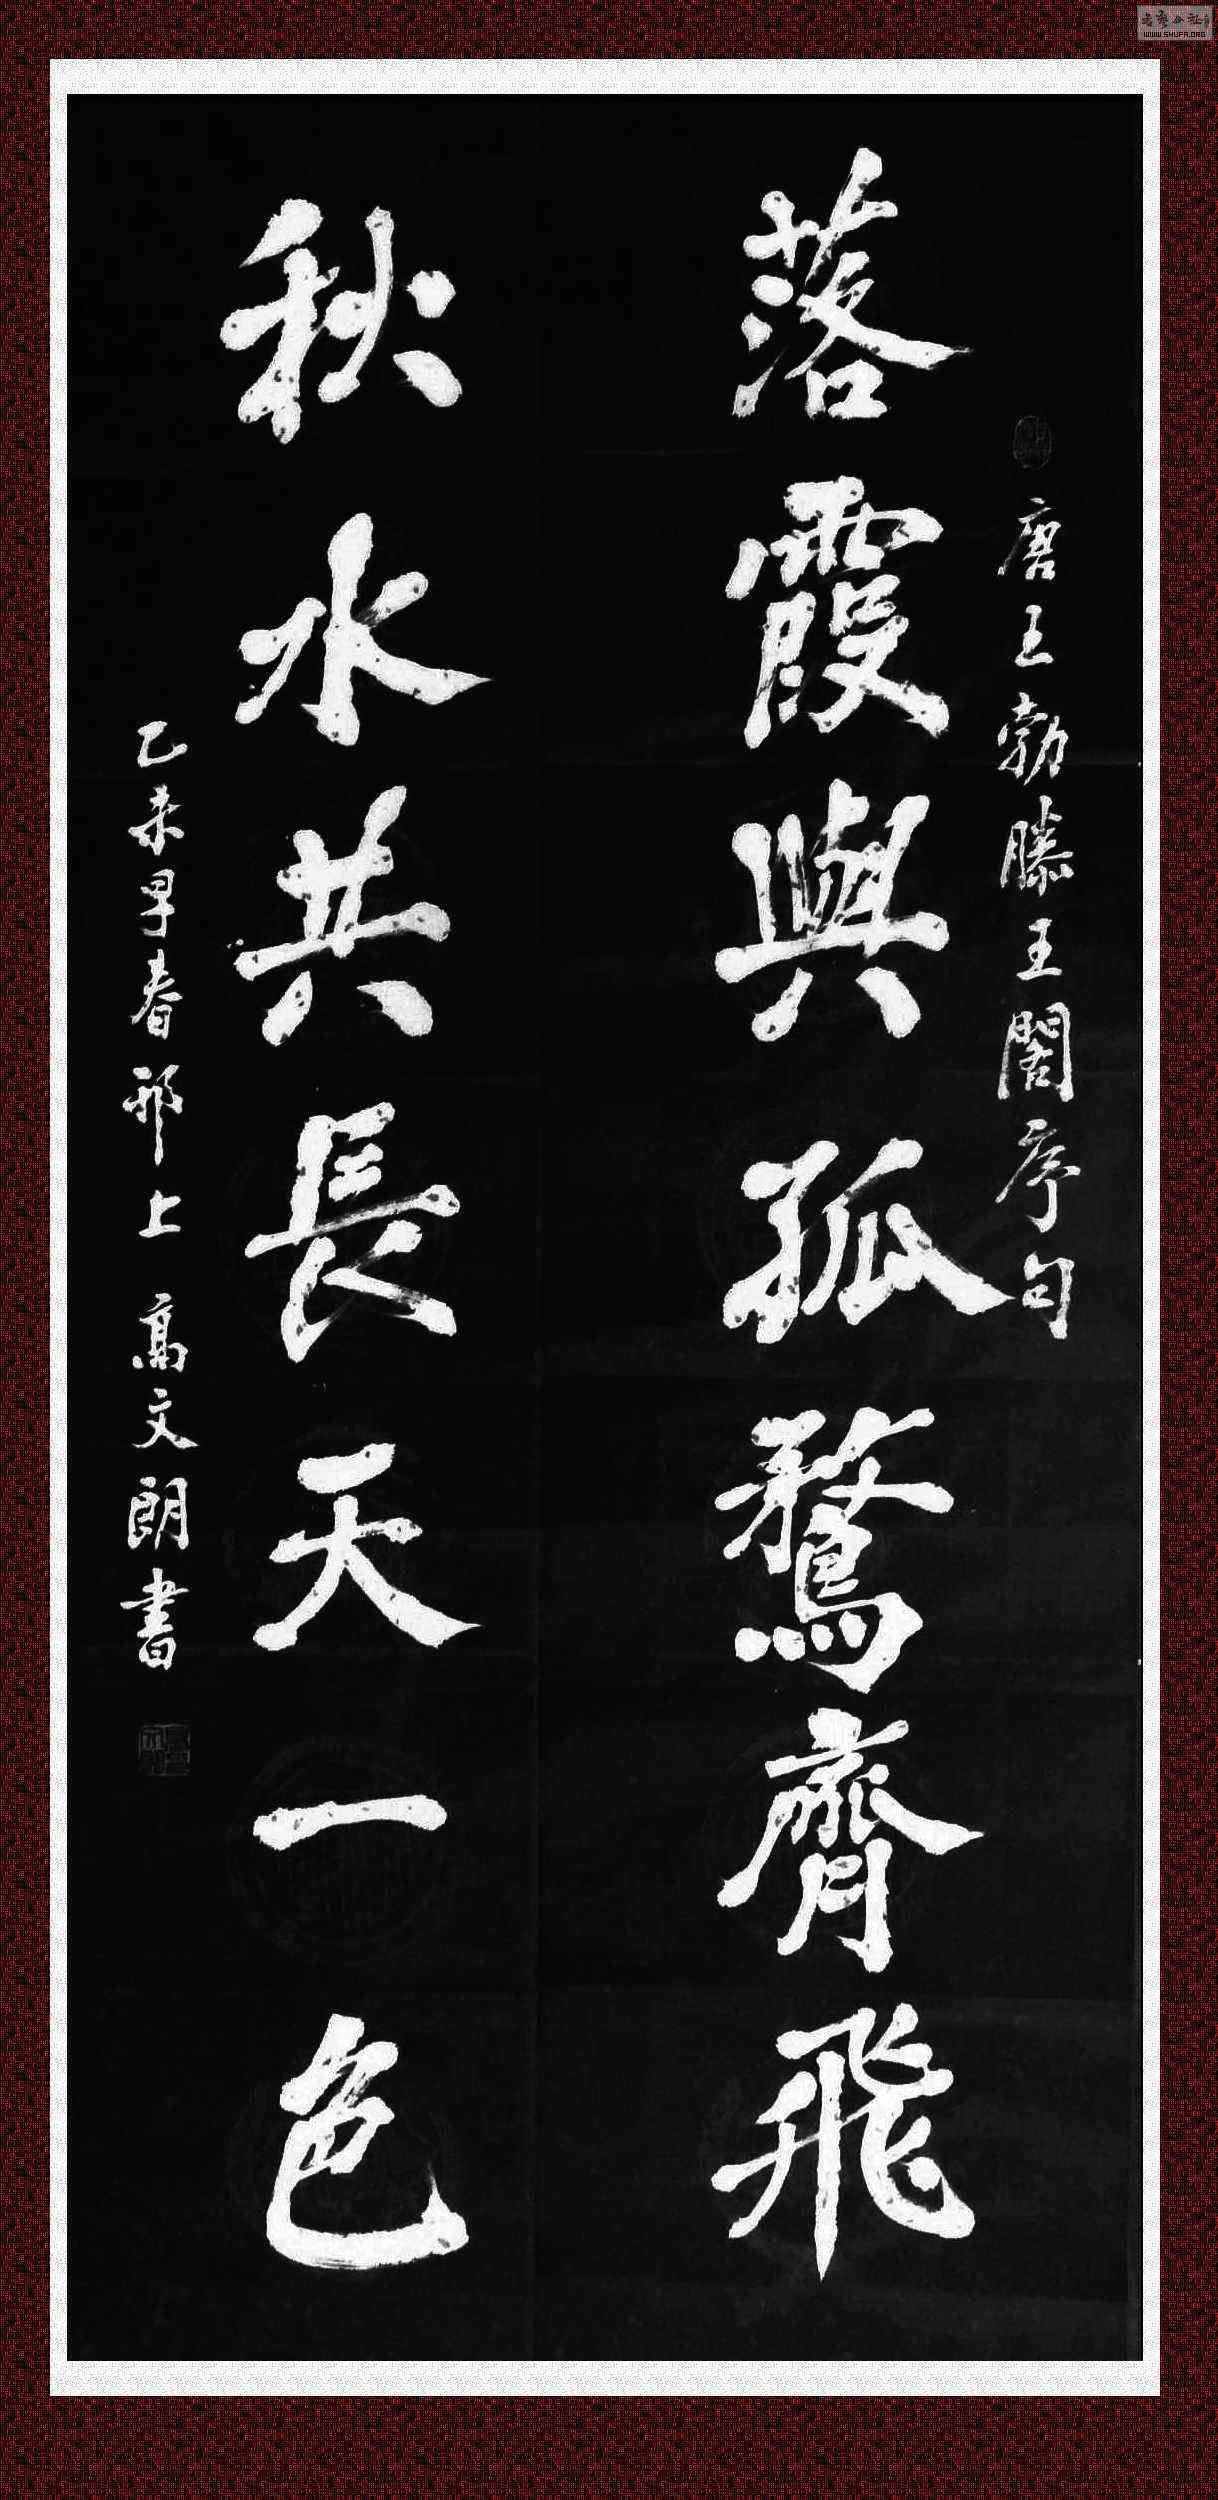 唐王勃滕王閣序句
落霞與孤鶩齊飛
秋水共長天一色
乙未早春邗上 高文朗書
WWW.SHUFA.ORG